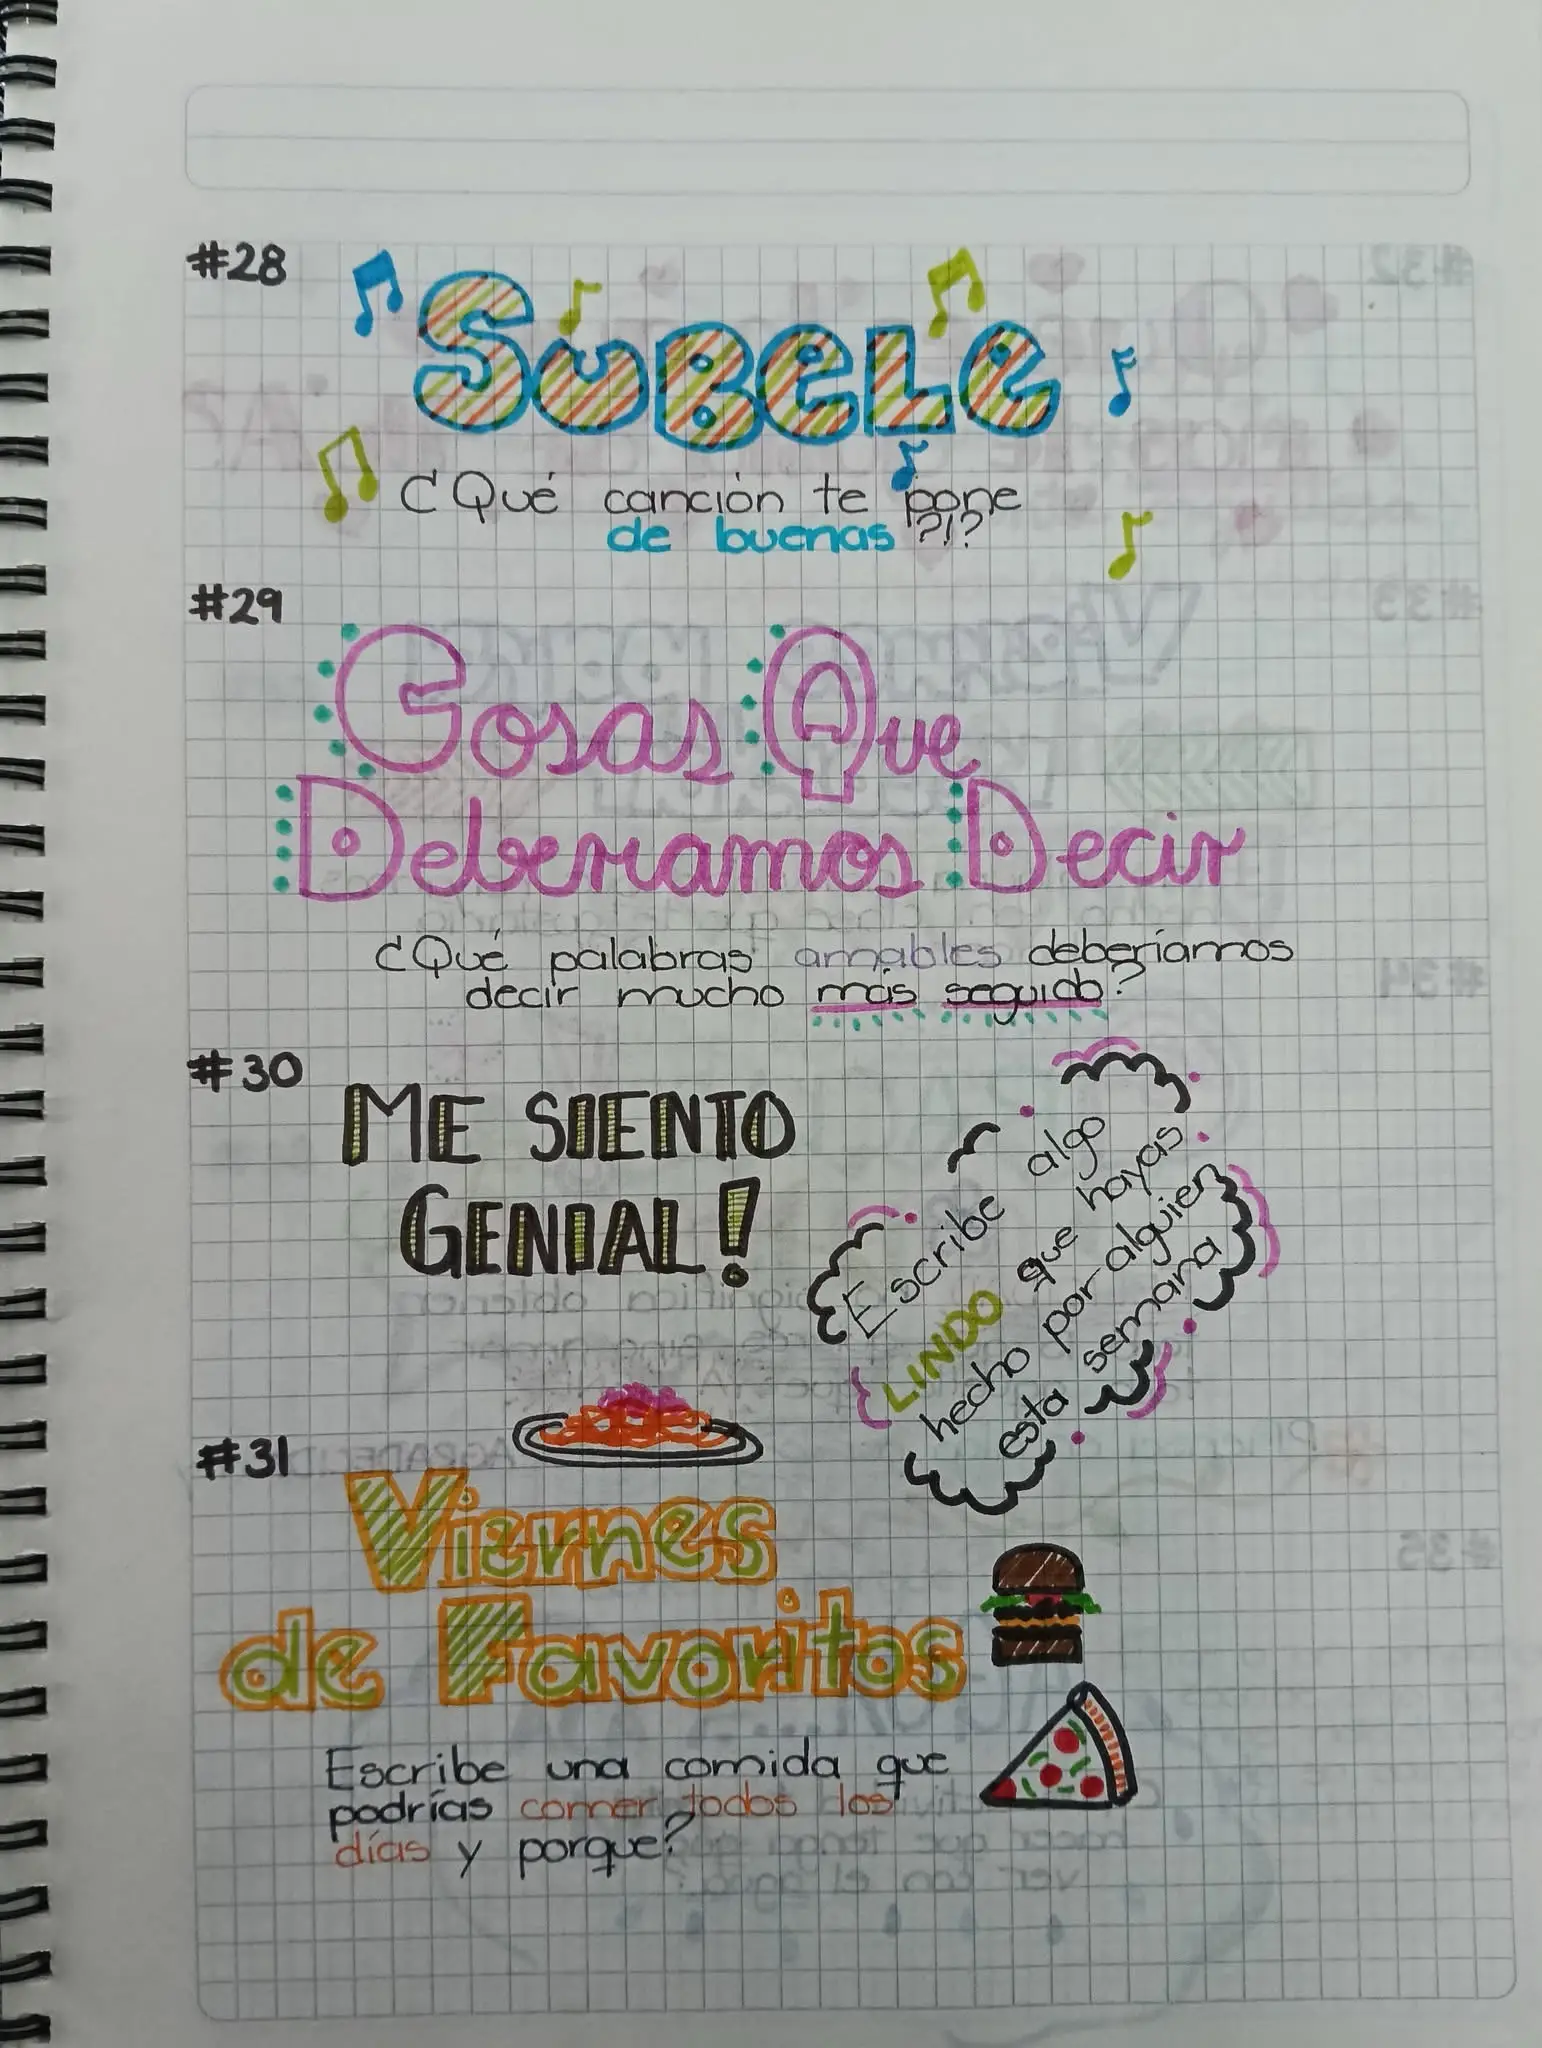 #28
SUBELE
¿Qué canción te pone
de buenas ?!?
#29
Cosas Que
Deberiamos Decir
¿Qué palabras amables deberíamos
decir mucho más seguido?
#30
ME SIENTO
GENIAL!
Escribe algo
LINDO que hayas
hecho por alguien
esta semana
#31
Viernes
de Favoritos
Escribe una comida que
podrías comer todos los
días y porque?